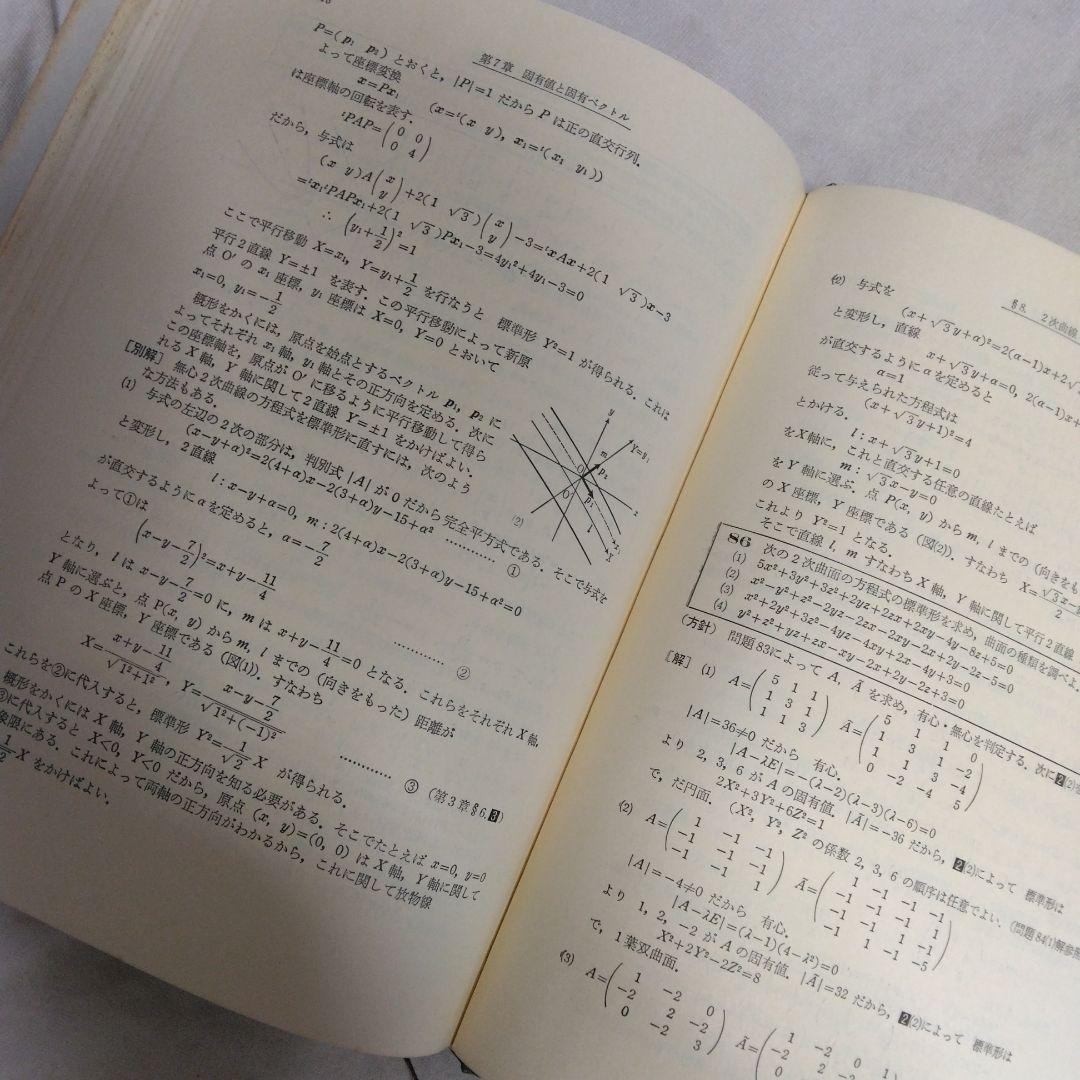 第7章 固有値と固有ベクトル
P=(p₁ p₂) とおくと, |P|=1 だから P は正の直交行列.
よって座標変換
x=Px₁ (x=ᵗ(x y), x₁=ᵗ(x₁ y₁))
は座標軸の回転を表す.
ᵗPAP=(0 0
0 4)
だから, 与式は
(x y)A(x
y)+2(1 √3)(x
y)−3=ᵗxAx+2(1 √3)x−3
=ᵗx₁ᵗPAPx₁+2(1 √3)Px₁−3=4y₁²+4y₁−3=0
∴ (y₁+1/2)²=1
ここで平行移動 X=x₁, Y=y₁+1/2 を行なうと 標準形 Y²=1 が得られる. これは
平行2直線 Y=±1 を表す. この平行移動によって新原
点 O′ の x₁ 座標, y₁ 座標は X=0, Y=0 とおいて
x₁=0, y₁=−1/2
概形をかくには, 原点を始点とするベクトル p₁, p₂ に
よってそれぞれ x₁ 軸, y₁ 軸とその正方向を定める. 次に
この座標軸を, 原点が O′ に移るように平行移動して得ら
れる X 軸, Y 軸に関して2直線 Y=±1 をかけばよい.
[別解] 無心2次曲線の方程式を標準形に直すには, 次のよう
な方法もある.
(1) 与式の左辺の2次の部分は, 判別式 |A| が 0 だから完全平方式である. そこで与式を
(x−y+α)²=2(4+α)x−2(3+α)y−15+α² ………… ①
と変形し, 2直線
l : x−y+α=0, m : 2(4+α)x−2(3+α)y−15+α²=0
が直交するように α を定めると, α=−7/2
よって①は
(x−y−7/2)²=x+y−11/4 ………… ②
となり, l は x−y−7/2=0 に, m は x+y−11/4=0 となる. これらをそれぞれ X 軸,
Y 軸に選ぶと, 点 P(x, y) から m, l までの (向きをもった) 距離が
点 P の X 座標, Y 座標である (図(1)). すなわち
X=(x+y−11/4)/√(1²+1²), Y=(x−y−7/2)/√(1²+(−1)²) ………… ③ (第3章§6.3)
これらを②に代入すると, 標準形 Y²=1/√2 X が得られる.
概形をかくには X 軸, Y 軸の正方向を知る必要がある. そこでたとえば x=0, y=0
③に代入すると X<0, Y<0 だから, 原点 (x, y)=(0, 0) は X 軸, Y 軸に関して
象限にある. これによって両軸の正方向がわかるから, これに関して放物線
X をかけばよい.
y
m
Y=y₁
p₂
O
O′
p₁
x
l
(2)
§8. 2次曲線
(2) 与式を
(x+√3y+α)²=2(α−1)x+2√
と変形し, 直線
x+√3y+α=0, 2(α−1)x+
が直交するように α を定めると
α=1
従って与えられた方程式は
(x+√3y+1)²=4
とかける.
l : x+√3y+1=0
を X 軸に, これと直交する任意の直線たとえば
m : √3x−y=0
を Y 軸に選ぶ. 点 P(x, y) から m, l までの (向きをも
の X 座標, Y 座標である (図(2)). すなわち X=
これより Y²=1 となる.
そこで直線 l, m すなわち X 軸, Y 軸に関して平行2直線
86 次の2次曲面の方程式の標準形を求め, 曲面の種類を調べよ.
(1) 5x²+3y²+3z²+2yz+2zx+2xy−4y−8z+5=0
(2) x²−y²+z²−2yz−2zx−2xy−2x+2y−2z−5=0
(3) x²+2y²+3z²−4yz−4xy+2x−4y+3=0
(4) y²+z²+yz+zx−xy−2x+2y−2z+3=0
(方針) 問題83によって A, Ã を求め, 有心・無心を判定する. 次に2(2)
[解] (1) A=(5 1 1
1 3 1
1 1 3) Ã=(5 1 1 0
1 3 1 −2
1 1 3 −4
0 −2 −4 5)
|A|=36≠0 だから 有心.
|A−λE|=−(λ−2)(λ−3)(λ−6)=0
より 2, 3, 6 が A の固有値. |Ã|=−36 だから, 2(2)によって 標準形は
2X²+3Y²+6Z²=1
で, だ円面. (X², Y², Z² の係数 2, 3, 6 の順序は任意でよい. (問題84(1)解参照
(2) A=(1 −1 −1
−1 −1 −1
−1 −1 1) Ã=(1 −1 −1 −1
−1 −1 −1 1
−1 −1 1 −1
−1 1 −1 −5)
|A|=−4≠0 だから 有心.
|A−λE|=(λ−1)(4−λ²)=0
より 1, 2, −2 が A の固有値. |Ã|=32 だから, 2(2)によって 標準形は
X²+2Y²−2Z²=8
で, 1葉双曲面.
(3) A=(1 −2 0
−2 2 −2
0 −2 3) Ã=(1 −2 0 1
−2 2 −2
0